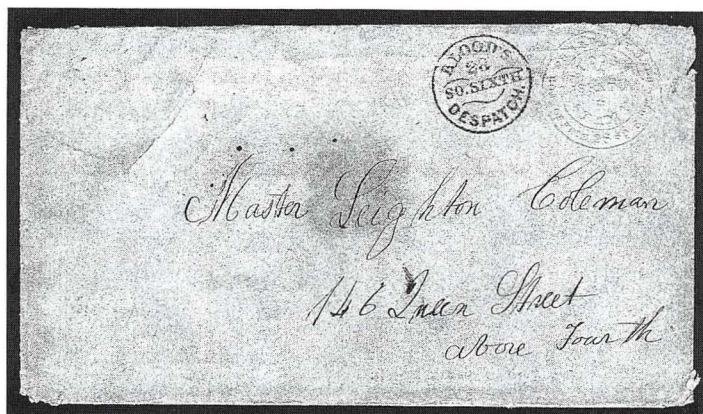 BLOOD'S
28
SO. SIXTH
DESPATCH.
Master Leighton Coleman
146 Queen Street
above Fourth